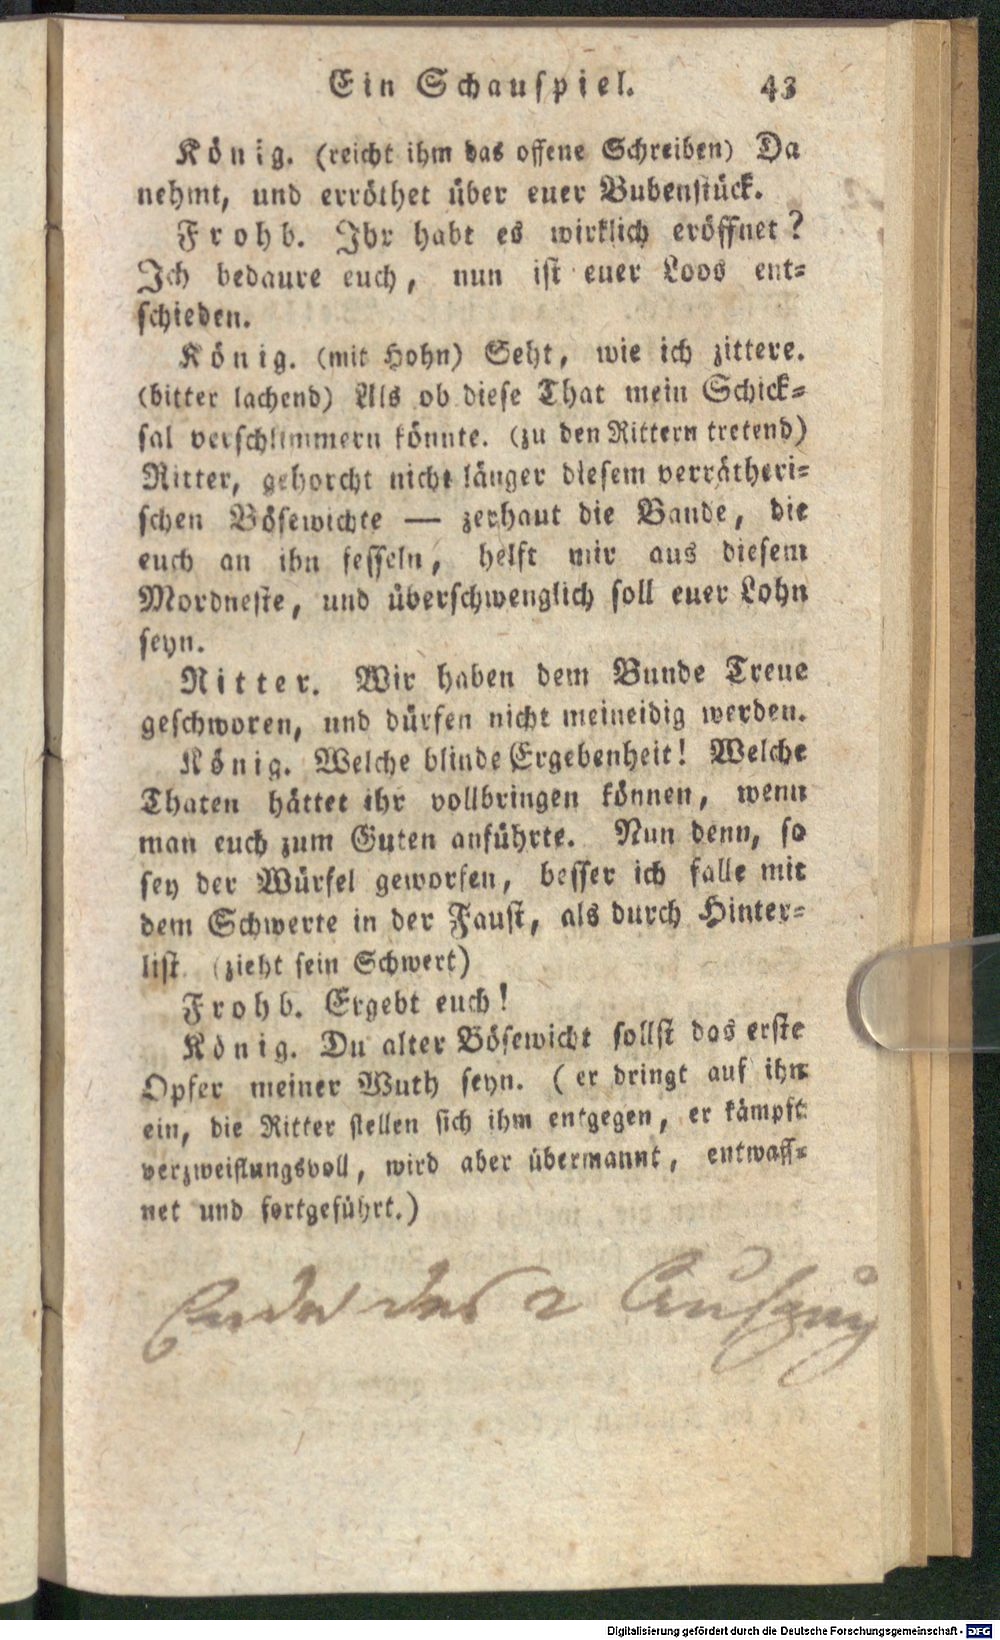 Ein Schauspiel. 43
König. (reicht ihm das offene Schreiben) Da
nehmt, und erröthet über euer Bubenstück.
Frohb. Ihr habt es wirklich eröffnet?
Ich bedaure euch, nun ist euer Loos ent=
schieden.
König. (mit Hohn) Seht, wie ich zittere.
(bitter lachend) Als ob diese That mein Schick=
sal verschlimmern könnte. (zu den Rittern tretend)
Ritter, gehorcht nicht länger diesem verrätheri=
schen Bösewichte — zerhaut die Bande, die
euch an ihn fesseln, helft mir aus diesem
Mordneste, und überschwenglich soll euer Lohn
seyn.
Ritter. Wir haben dem Bunde Treue
geschworen, und dürfen nicht meineidig werden.
König. Welche blinde Ergebenheit! Welche
Thaten hättet ihr vollbringen können, wenn
man euch zum Guten anführte. Nun denn, so
sey der Würfel geworfen, besser ich falle mit
dem Schwerte in der Faust, als durch Hinter=
list. (zieht sein Schwert)
Frohb. Ergebt euch!
König. Du alter Bösewicht sollst das erste
Opfer meiner Wuth seyn. (er dringt auf ihn
ein, die Ritter stellen sich ihm entgegen, er kämpft
verzweiflungsvoll, wird aber übermannt, entwaff=
net und fortgeführt.)
Ende des 2 Aufzug
Digitalisierung gefördert durch die Deutsche Forschungsgemeinschaft - DFG